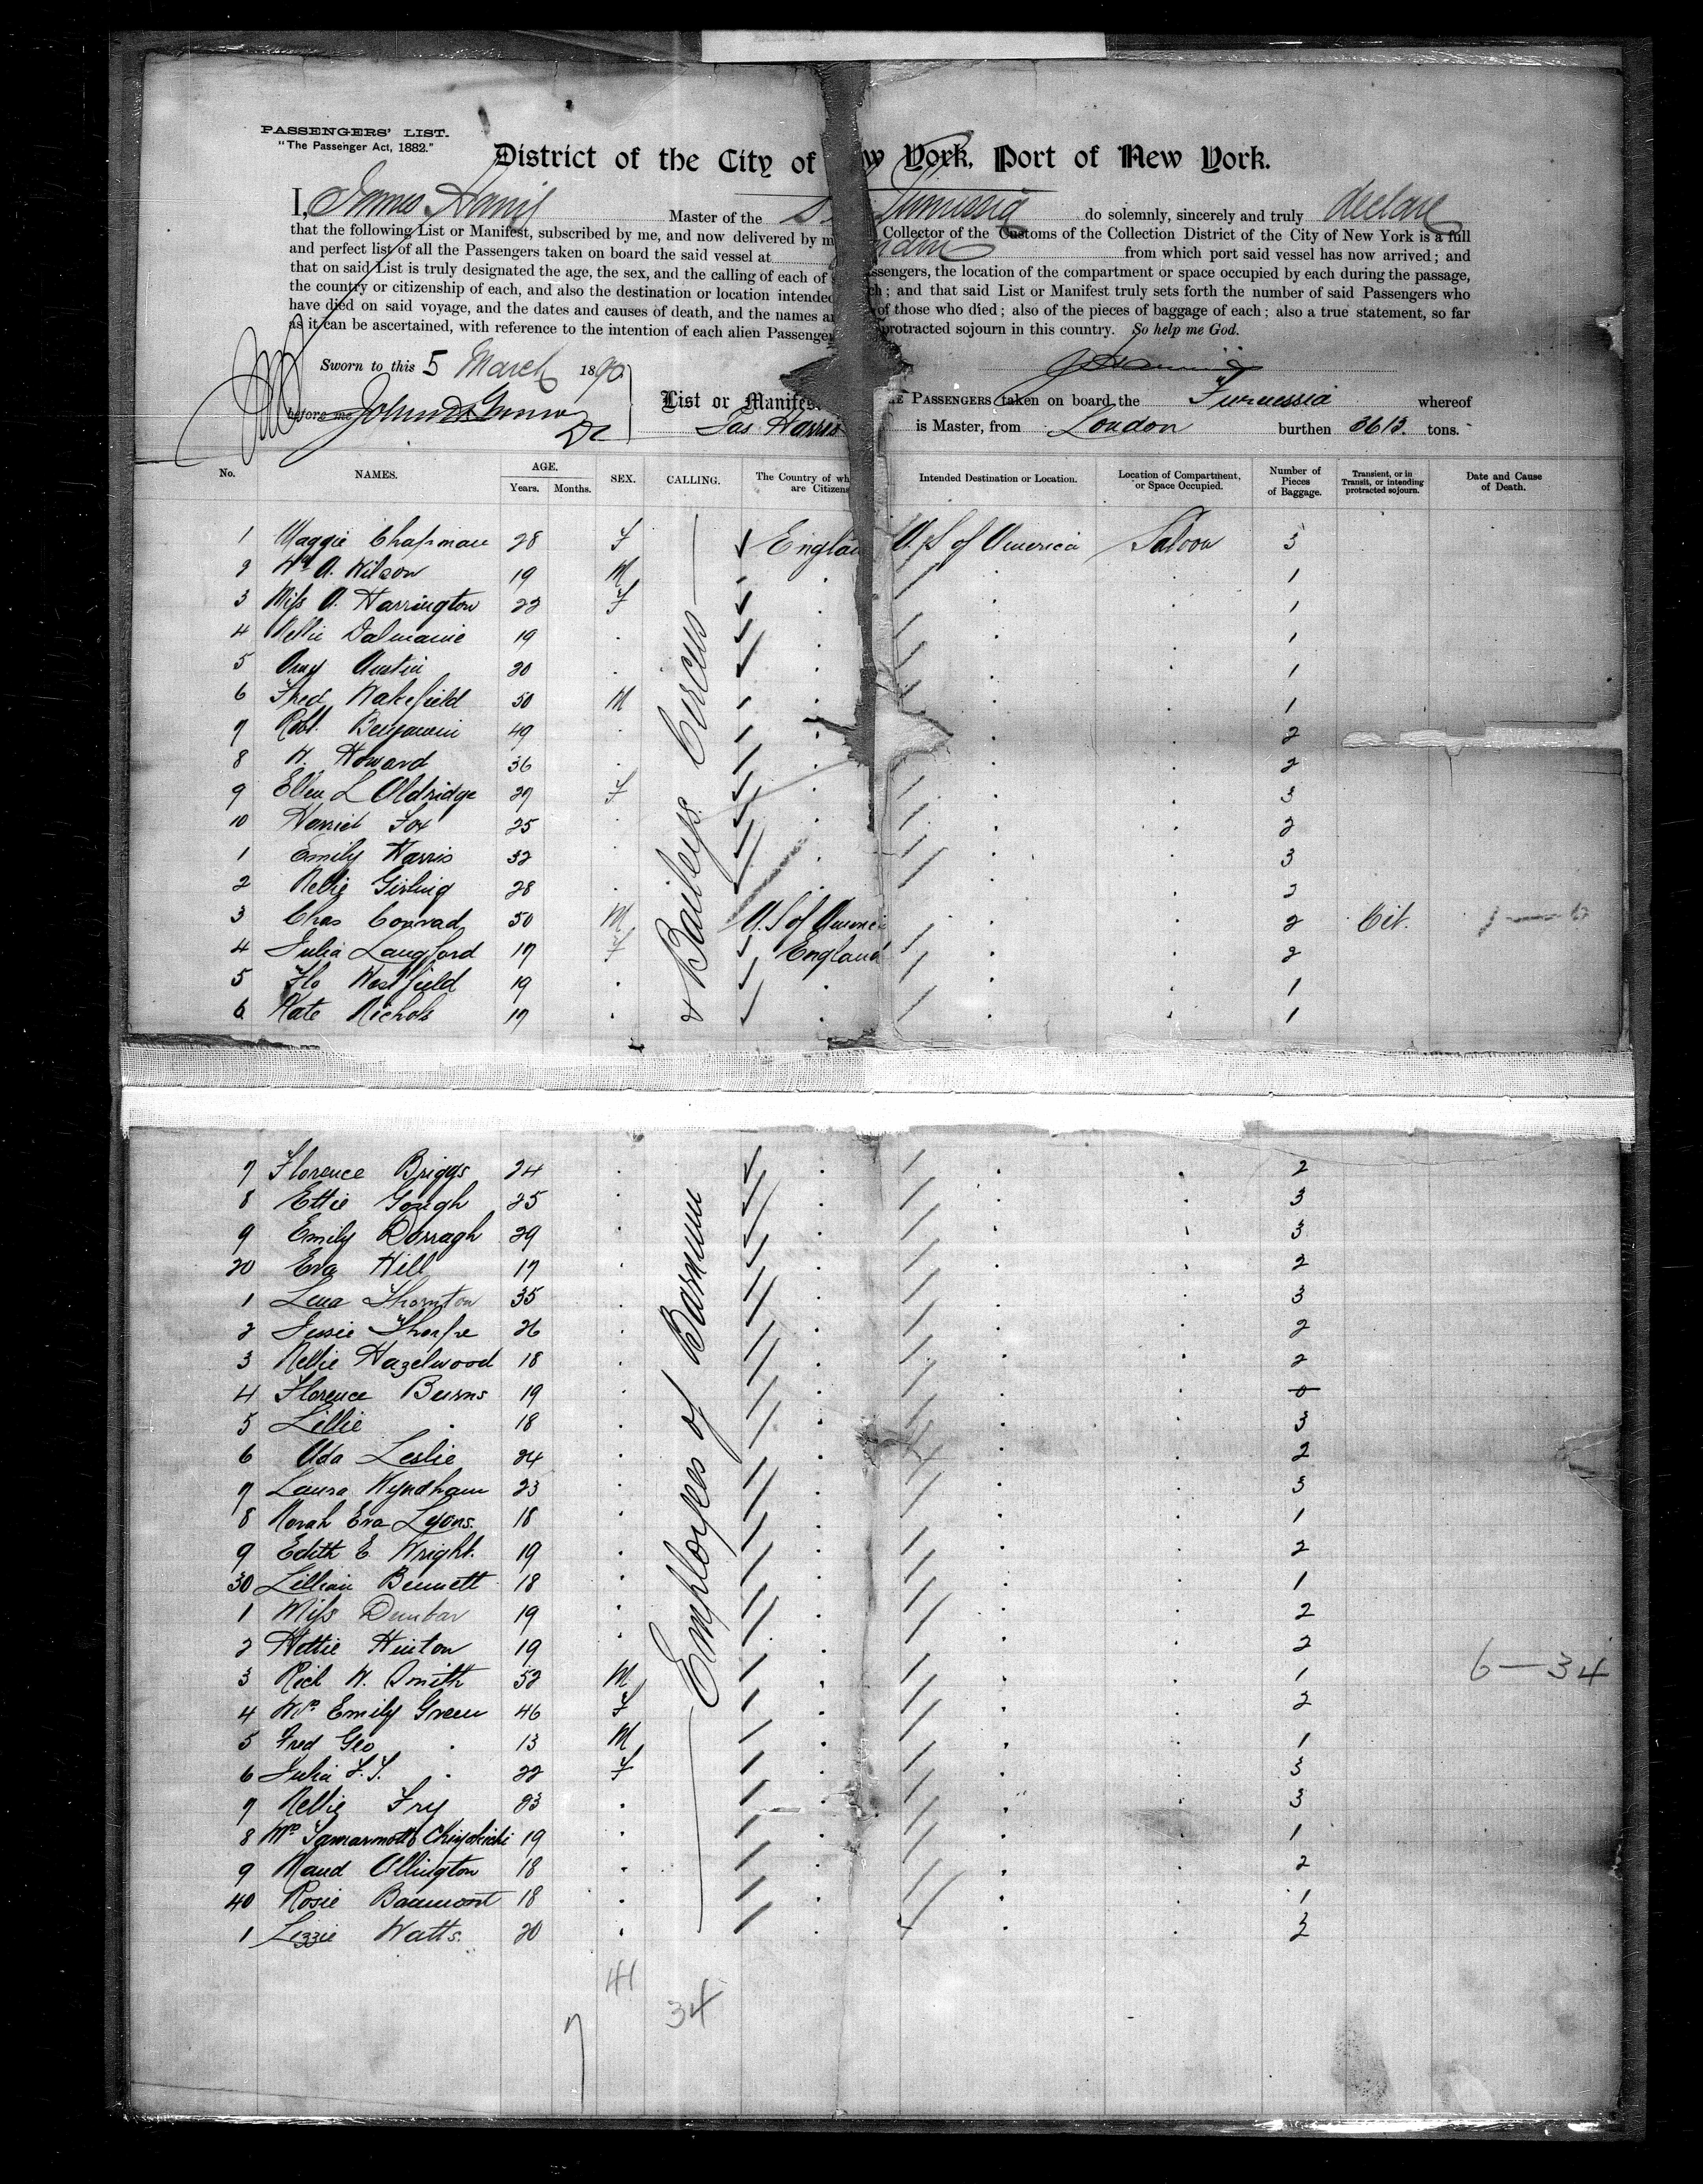 PASSENGERS' LIST.
"The Passenger Act, 1882."
District of the City of w York, Port of New York.
I, James Harris Master of the S Furnessia do solemnly, sincerely and truly declare
that the following List or Manifest, subscribed by me, and now delivered by m Collector of the Customs of the Collection District of the City of New York is a full
and perfect list of all the Passengers taken on board the said vessel at ndon from which port said vessel has now arrived; and
that on said List is truly designated the age, the sex, and the calling of each of s assengers, the location of the compartment or space occupied by each during the passage,
the country or citizenship of each, and also the destination or location intended ch; and that said List or Manifest truly sets forth the number of said Passengers who
have died on said voyage, and the dates and causes of death, and the names an of those who died; also of the pieces of baggage of each; also a true statement, so far
as it can be ascertained, with reference to the intention of each alien Passenger protracted sojourn in this country. So help me God.
Sworn to this 5 March 1890
before me John
List or Manifest E PASSENGERS taken on board the Furnessia whereof
Jas Harris is Master, from London burthen 3613. tons.
No. NAMES. AGE. Years. Months. SEX. CALLING. The Country of wh are Citizens Intended Destination or Location. Location of Compartment, or Space Occupied. Number of Pieces of Baggage. Transient, or in Transit, or intending protracted sojourn. Date and Cause of Death.
Employees of Barnum & Baileys Circus
1 Maggie Chapman 28 F Englan U.S of America Saloon 3
2 Wm A. Wilson 19 M 1
3 Miss A. Harrington 22 F 1
4 Nellie Dalmaine 19 1
5 Amy Austin 20 1
6 Fred Wakefield 50 M 1
7 Robt. Benjamin 49 2
8 W. Howard 36 2
9 Ellen L Aldridge 27 F 3
10 Harriet Fox 25 2
1 Emily Harris 32 3
2 Nellie Girling 28 2
3 Chas Conrad 50 M U.S of Americ 2 Cit.
4 Julia Langford 17 F England 2
5 Flo Westfield 19 1
6 Kate Nichols 17 1
7 Florence Briggs 24 2
8 Ettie Gough 25 3
9 Emily Darragh 29 3
20 Eva Hill 17 2
1 Lena Thornton 35 3
2 Jessie Thorpe 26 2
3 Nellie Hazelwood 18 2
4 Florence Burns 19 0
5 Lillie 18 3
6 Ada Leslie 24 2
7 Laura Wyndham 23 3
8 Norah Eva Lyons. 18 1
9 Edith E Wright. 19 2
30 Lillian Bennett 18 1
1 Miss Dunbar 19 2
2 Hettie Hinton 19 2
3 Rich W. Smith 52 M 1 6—34
4 Mrs Emily Green 46 F 2
5 Fred Geo 13 M 1
6 Julia F. T. 22 F 3
7 Nellie Fry 23 3
8 Mrs Yamarmotto Chiyokichi 19 1
9 Maud Allington 18 2
40 Rosie Beaumont 18 1
1 Lizzie Watts. 20 3
41
34
7